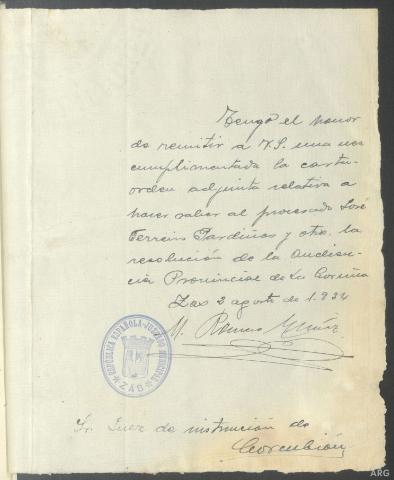 Tengo el honor
de remitir a V.S. una vez
cumplimentada la carta-
orden adjunta relativa a
hacer saber al procesado José
Ferreiro Pardiñas y otro, la
resolución de la Audien-
cia Provincial de La Coruña
Zas 2 agosto de 1.934
M. Romero
REPÚBLICA ESPAÑOLA-JUZGADO MUNICIPAL
ZAS
Sr. Juez de instrucción de
Corcubión
ARG